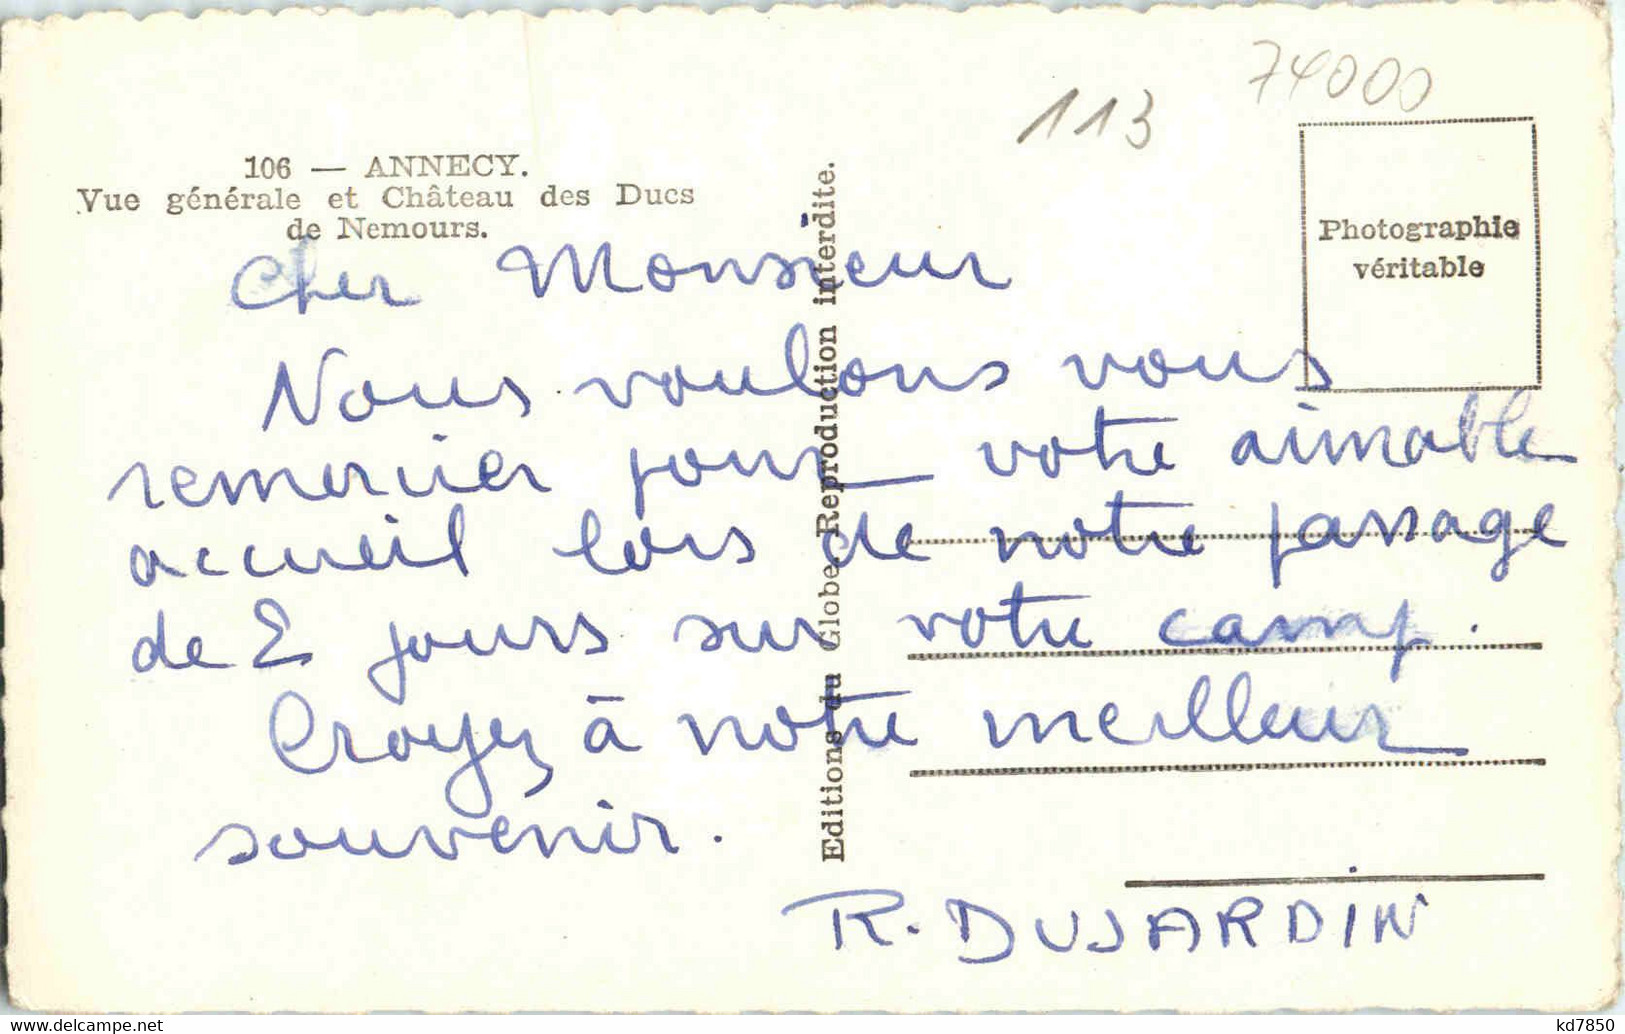 74000
113
106 — ANNECY.
Vue générale et Château des Ducs
de Nemours.
Photographie
véritable
Editions du Globe Reproduction interdite.
Cher Monsieur
Nous voulons vous
remercier pour votre aimable
accueil lors de notre passage
de 2 jours sur votre camp.
Croyez à notre meilleur
souvenir.
R. DUJARDIN
www.delcampe.net
kd7850